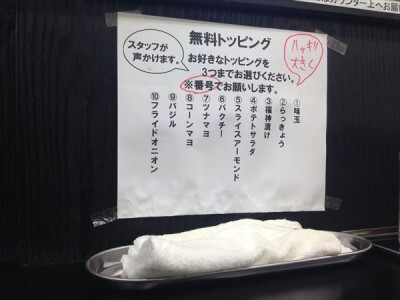 無料トッピング
スタッフが
声かけます。
お好きなトッピングを
3つまでお選びください。
※番号でお願いします。
ハッキリ
大きく
①味玉
②らっきょう
③福神漬け
④ポテトサラダ
⑤スライスアーモンド
⑥パクチー
⑦ツナマヨ
⑧コーンマヨ
⑨バジル
⑩フライドオニオン